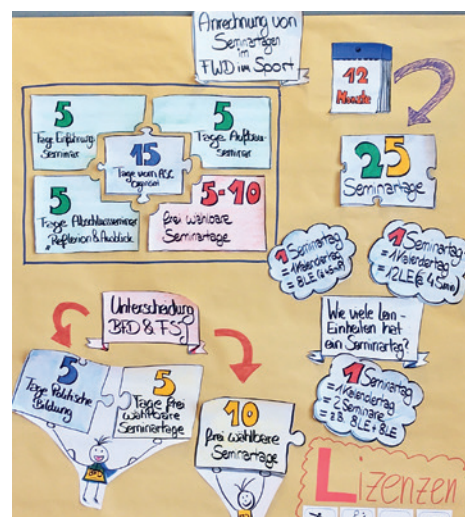 Anrechnung von
Seminartagen
im
FWD im Sport
12
Monate
25
Seminartage
5
Tage Einführungs-
seminar
5
Tage Aufbau-
seminar
15
Tage vom ASC
5
Tage Abschlussseminar
Reflexion & Ausblick
5-10
frei wählbare
Seminartage
1 Seminartag
= 1 Kalendertag
= 8 LE (á 45min)
1 Seminartag
= 1 Kalendertag
= 12 LE (á 45min)
Wie viele Lern-
Einheiten hat
ein Seminartag?
1 Seminartag
= 1 Kalendertag
= 2 Seminare
= z.B. 8LE + 8LE
Unterscheidung
BFD & FSJ
5
Tage Politische
Bildung
5
Tage frei
wählbare
Seminartage
10
frei wählbare
Seminartage
BFD
Lizenzen